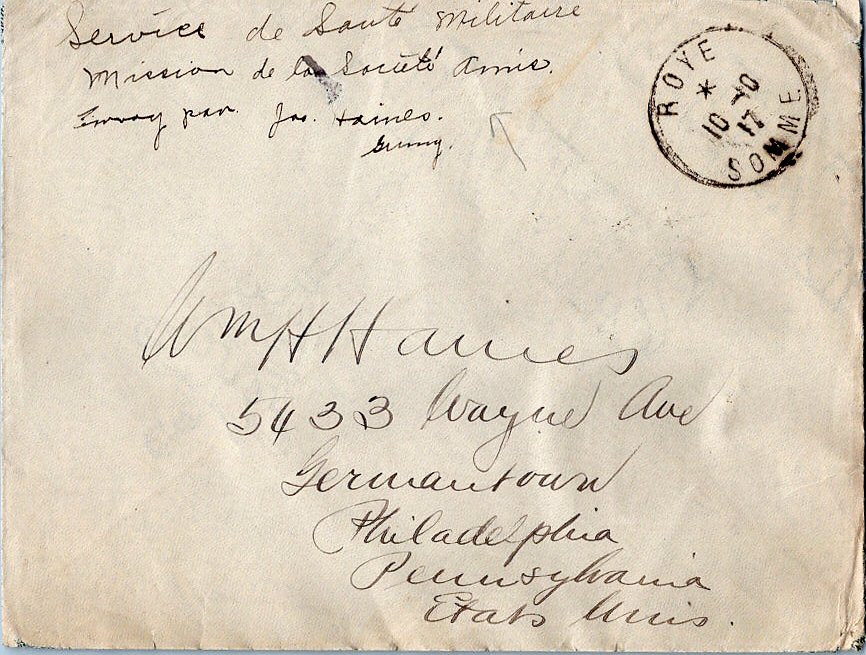 Service de Santé Militaire
Mission de la Société Amis.
Envoy par Jas. Haines.
ROYE
*
10 10
17
SOMME
Wm H Haines
5433 Wayne Ave
Germantown
Philadelphia
Pennsylvania
Etats Unis.